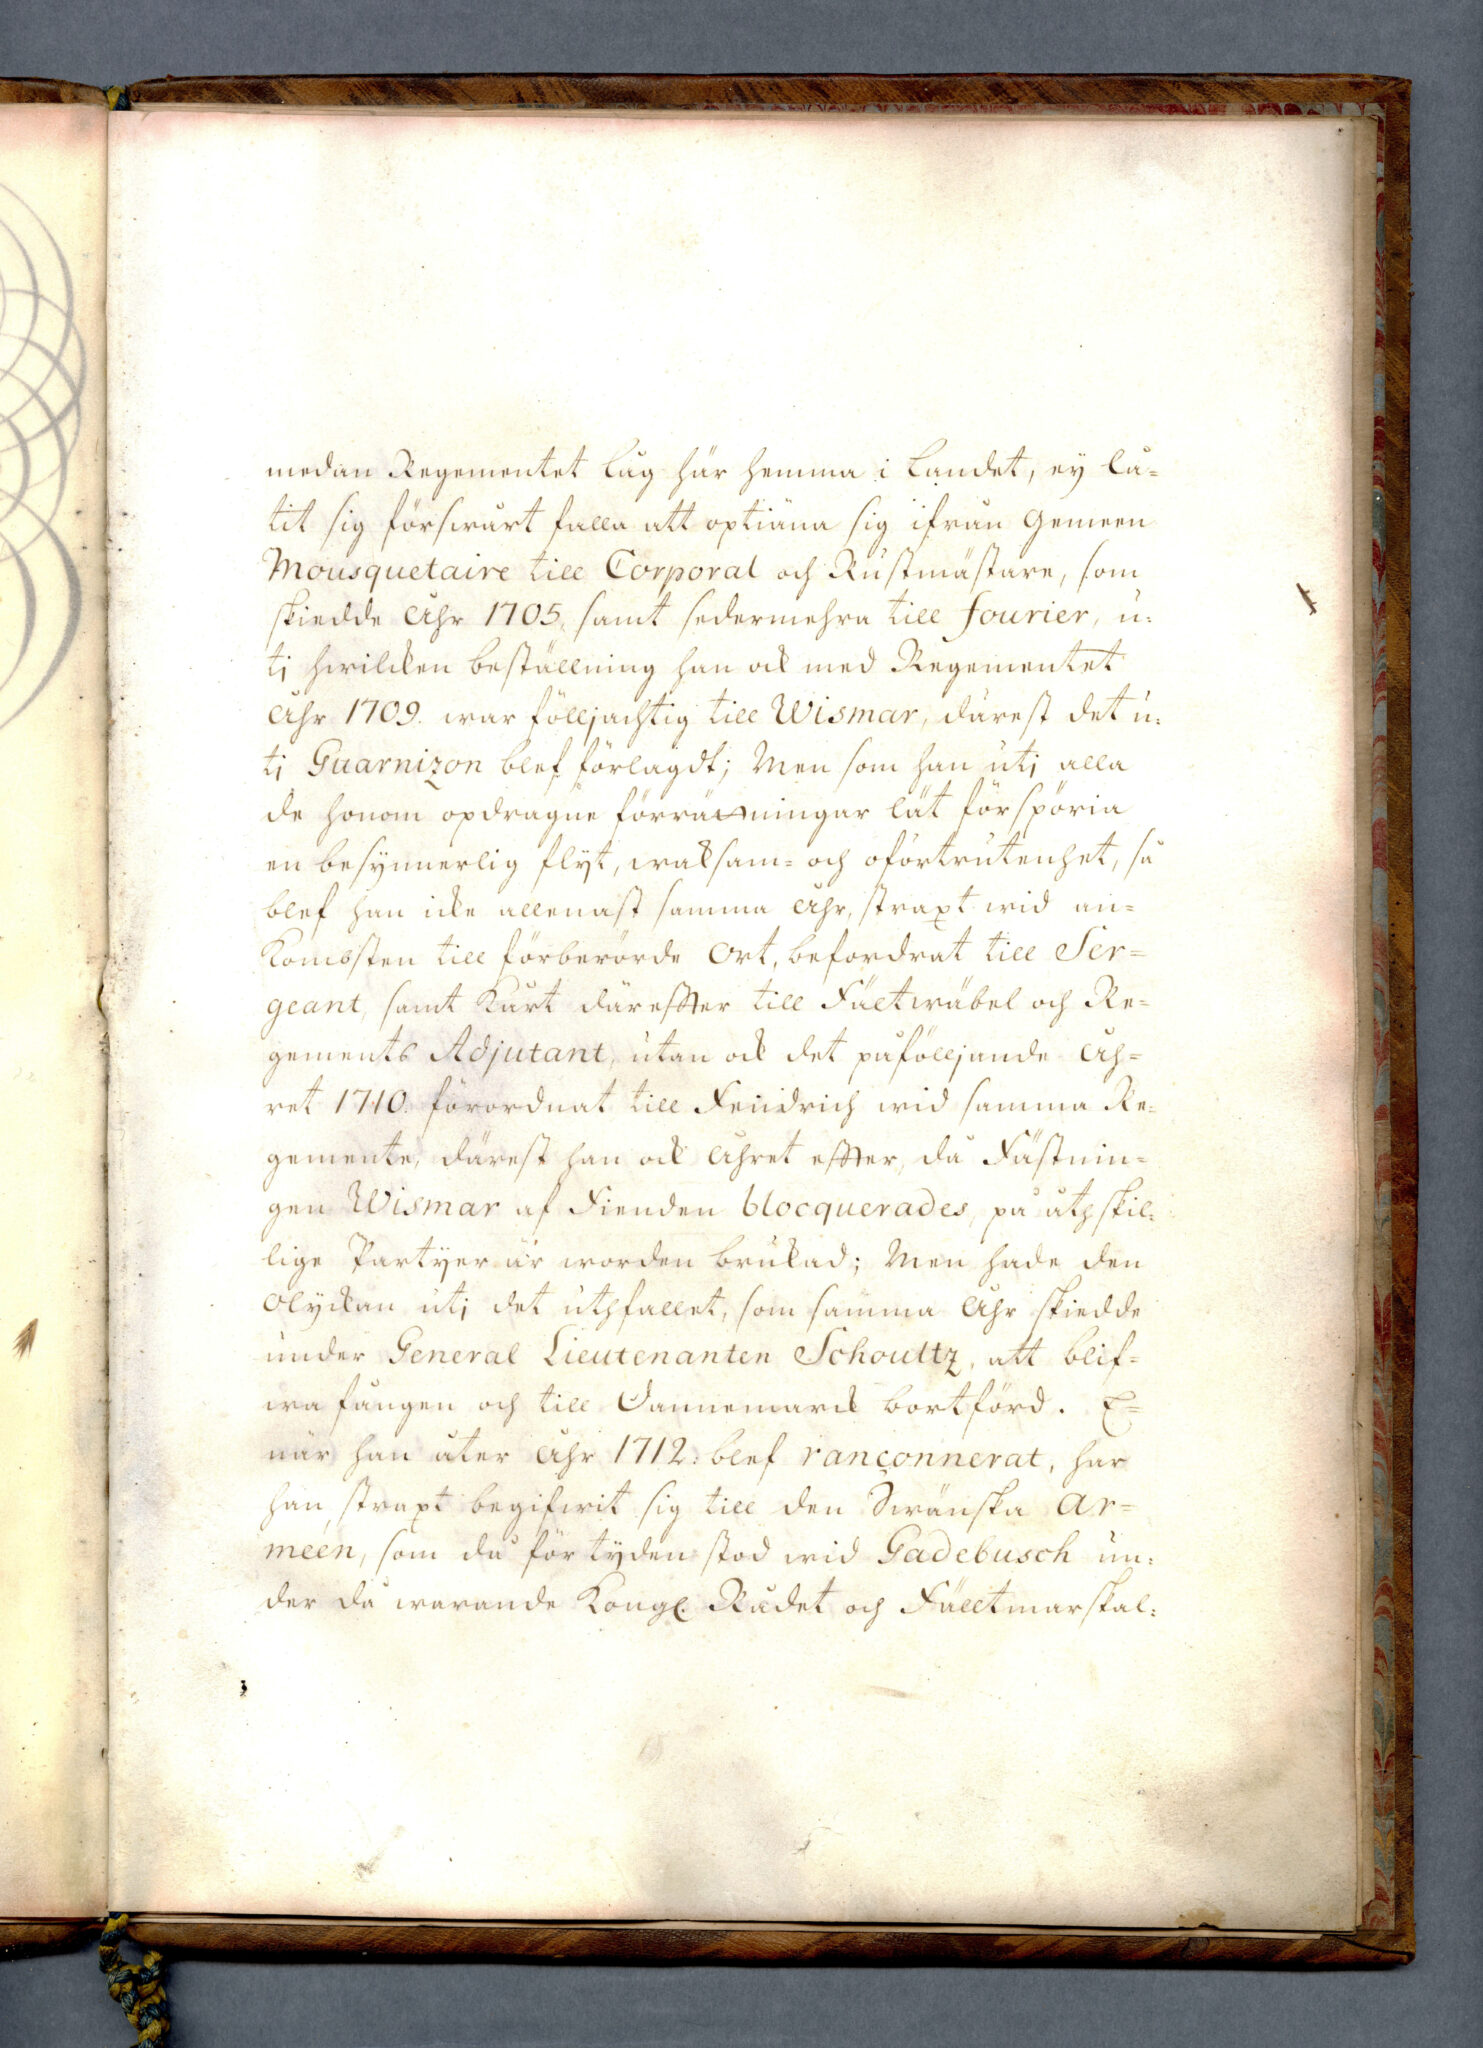 medan Regementet låg här hemma i Landet, ey lå-
tit sig förswårt falla att optiäna sig ifrån Gemeen
Mousquetaire till Corporal och Rustmästare, som
skiedde Åhr 1705, samt sedermehra till fourier, u-
ti hwilcken beställning han ock med Regementet
Åhr 1709. war fölljachtig till Wismar, därest det u-
ti Guarnizon blef förlagdt; Men som han uti alla
de honom opdragne förrättningar lät förspöria
en besynnerlig flyt, waksam- och oförtrutenhet, så
blef han icke allenast samma Åhr, straxt wid an-
Komsten till förberörde Ort, befordrat till Ser-
geant, samt Kurt däreffter till Fältwäbel och Re-
gements Adjutant, utan ock det påfölljande Åh-
ret 1710. förordnat till Fendrich wid samma Re-
gemente, därest han ock Åhret effter, då Fästnin-
gen Wismar af Fienden blocquerades, på åthskil-
lige Partyer är worden brukad; Men hade den
Olyckan uti det uthfallet, som samma Åhr skiedde
under General Lieutenanten Schoultz, att blif-
wa fången och till Dannemarck bortförd. E-
när han åter Åhr 1712. blef rançonnerat, har
han straxt begifwit sig till den Swänska Ar-
méen, som då för tyden stod wid Gadebusch un-
der då warande Kongl. Rådet och Fälltmarskal-